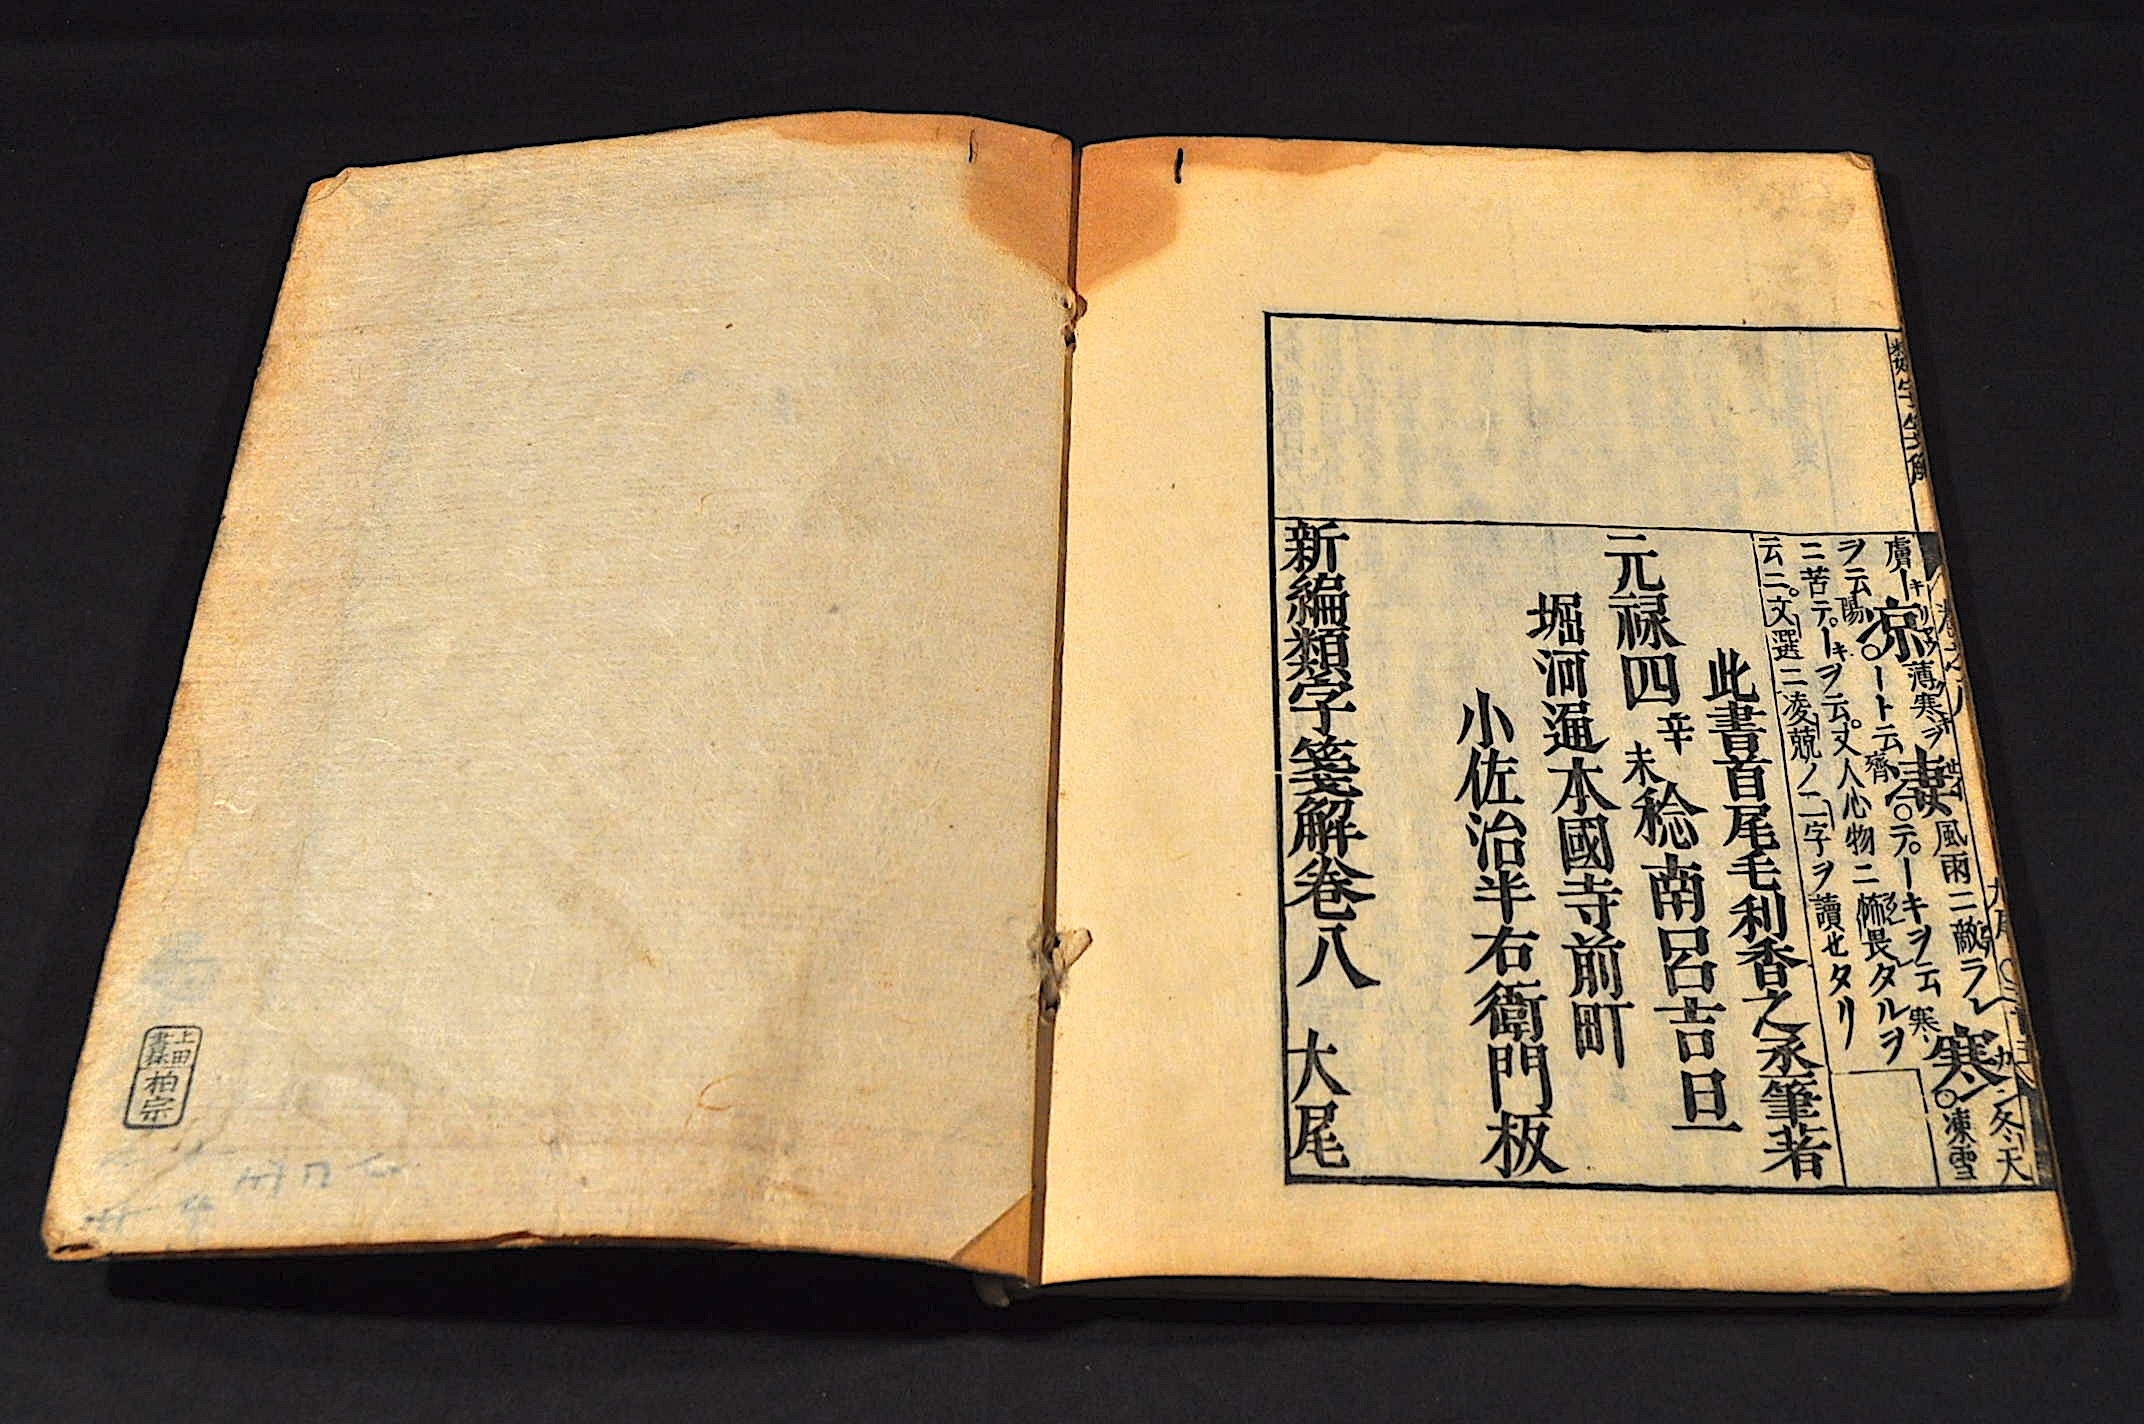 類字箋解
凉 薄寒ヲ 凄 風雨ニ敵ラ 寒 凍雪
ヲ云陽 ートト云齊 テーキヲ云寒
ニ苦テーキヲ云丈人心物ニ怖畏タルヲ
云ニ文選ニ凌兢ノ二字ヲ讀セタリ
此書首尾毛利香之丞筆者
元禄四辛未稔南呂吉旦
堀河通本國寺前町
小佐治半右衛門板
新編類字箋解巻八 大尾
上田
書林
柏宗